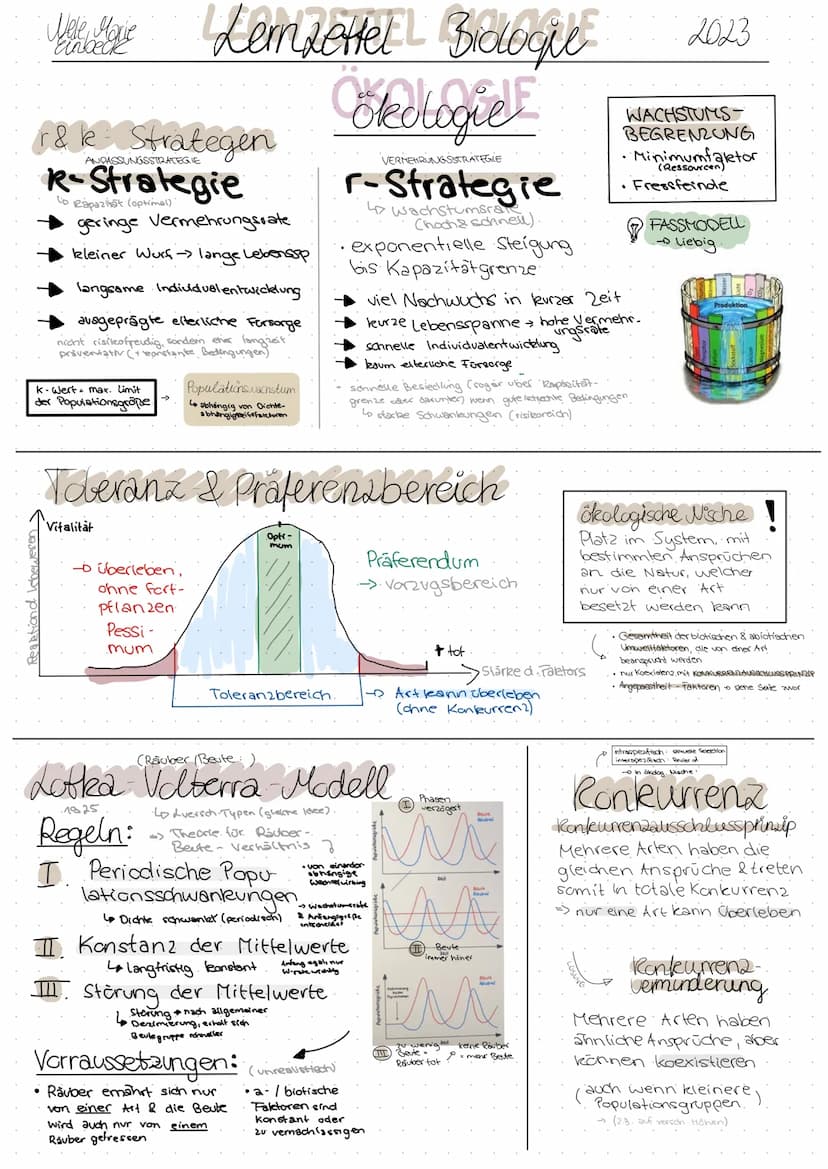 Nele Marie
Einbeck
LERNZETTEL BIOLOGIE
Lernzettel Biologie
2023
ÖKOLOGIE
Ökologie
r & k - Strategen
ANPASSUNGSSTRATEGIE
K-Strategie
↳ Kapazität (optimal)
→ geringe Vermehrungsrate
→ kleiner Wurf → lange Lebenssp
→ langsame Individualentwicklung
→ ausgeprägte elterliche Fürsorge
nicht risikofreudig, sondern eher langzeit
präventativ (+ konstante Bedingungen)
K-Wert = max. Limit
der Populationsgröße
→
Populationswachstum
↳ abhängig von Dichte-
abhängigkeitsfaktoren
VERMEHRUNGSSTRATEGIE
r-Strategie
↳ Wachstumsrate
(hoch & schnell)
· exponentielle Steigung
bis Kapazitätgrenze
→ viel Nachwuchs in kurzer Zeit
→ kurze Lebensspanne → hohe Vermehr-
ungsrate
→ schnelle Individualentwicklung
→ kaum elterliche Fürsorge
· schnelle Besiedlung (sogar über Kapazität-
grenze oder darunter) wenn gute/schlechte Bedingungen
↳ starke Schwankungen (risikoreich)
WACHSTUMS-
BEGRENZUNG
· Minimumfaktor
(Ressourcen)
· Fressfeinde
FASSMODELL
→ Liebig
Produktion
Toleranz & Präferenzbereich
Vitalität
Reaktion d. Lebewesen
→ überleben,
ohne fort-
pflanzen
Pessi-
mum
Opti-
mum
Präferendum
→ Vorzugsbereich
† tot
Stärke d. Faktors
Toleranzbereich
→ Art kann überleben
(ohne Konkurrenz)
ökologische Nische !
Platz im System, mit
bestimmten Ansprüchen
an die Natur, welcher
nur von einer Art
besetzt werden kann
· Gesamtheit der biotischen & abiotischen
Umweltfaktoren, die von einer Art
beansprucht werden
· nur Koexistenz mit KONKURRENZAUSSCHLUSSPRINZIP
· Angepasstheit - Faktoren → siehe Seite zuvor
(Räuber/Beute:)
Lotka-Volterra-Modell
1925
↳ 2 versch. Typen (gleiche Idee)
=> Theorie für Räuber-
Beute-Verhältnis
Regeln:
I. Periodische Popu-
lationsschwankungen
↳ Dichte schwankt (periodisch)
· von einander
abhängige
Wechselwirkung
→ Wachstumsrate
& Anfangsgröße
entscheidet
II. Konstanz der Mittelwerte
↳ langfristig konstant
Anfang egal, nur
III. Störung der Mittelwerte
↳ Störung → nach allgemeiner
Dezimierung, erholt sich
Beutegruppe schneller
I Phasen
verzögert
Räuber
Beute
Populationsgröße
Zeit
II Beute
immer höher
III zu wenig
Beute =
Räuber tot
keine Räuber
= mehr Beute
Vorraussetzungen:
(unrealistisch)
· Räuber ernährt sich nur
von einer Art & die Beute
wird auch nur von einem
Räuber gefressen
· a- / biotische
Faktoren sind
Konstant oder
zu vernachlässigen
intraspezifisch: sexuelle Selektion
→ in ökolog. Nische:
Konkurrenz
Konkurrenzausschlussprinzip
Mehrere Arten haben die
gleichen Ansprüche & treten
somit in totale Konkurrenz
=> nur eine Art kann überleben
LÖSUNG
Konkurrenz-
verminderung
Mehrere Arten haben
ähnliche Ansprüche, aber
können koexistieren
(auch wenn kleinere
Populationsgruppen)
→ (z.B. auf versch. Höhen)